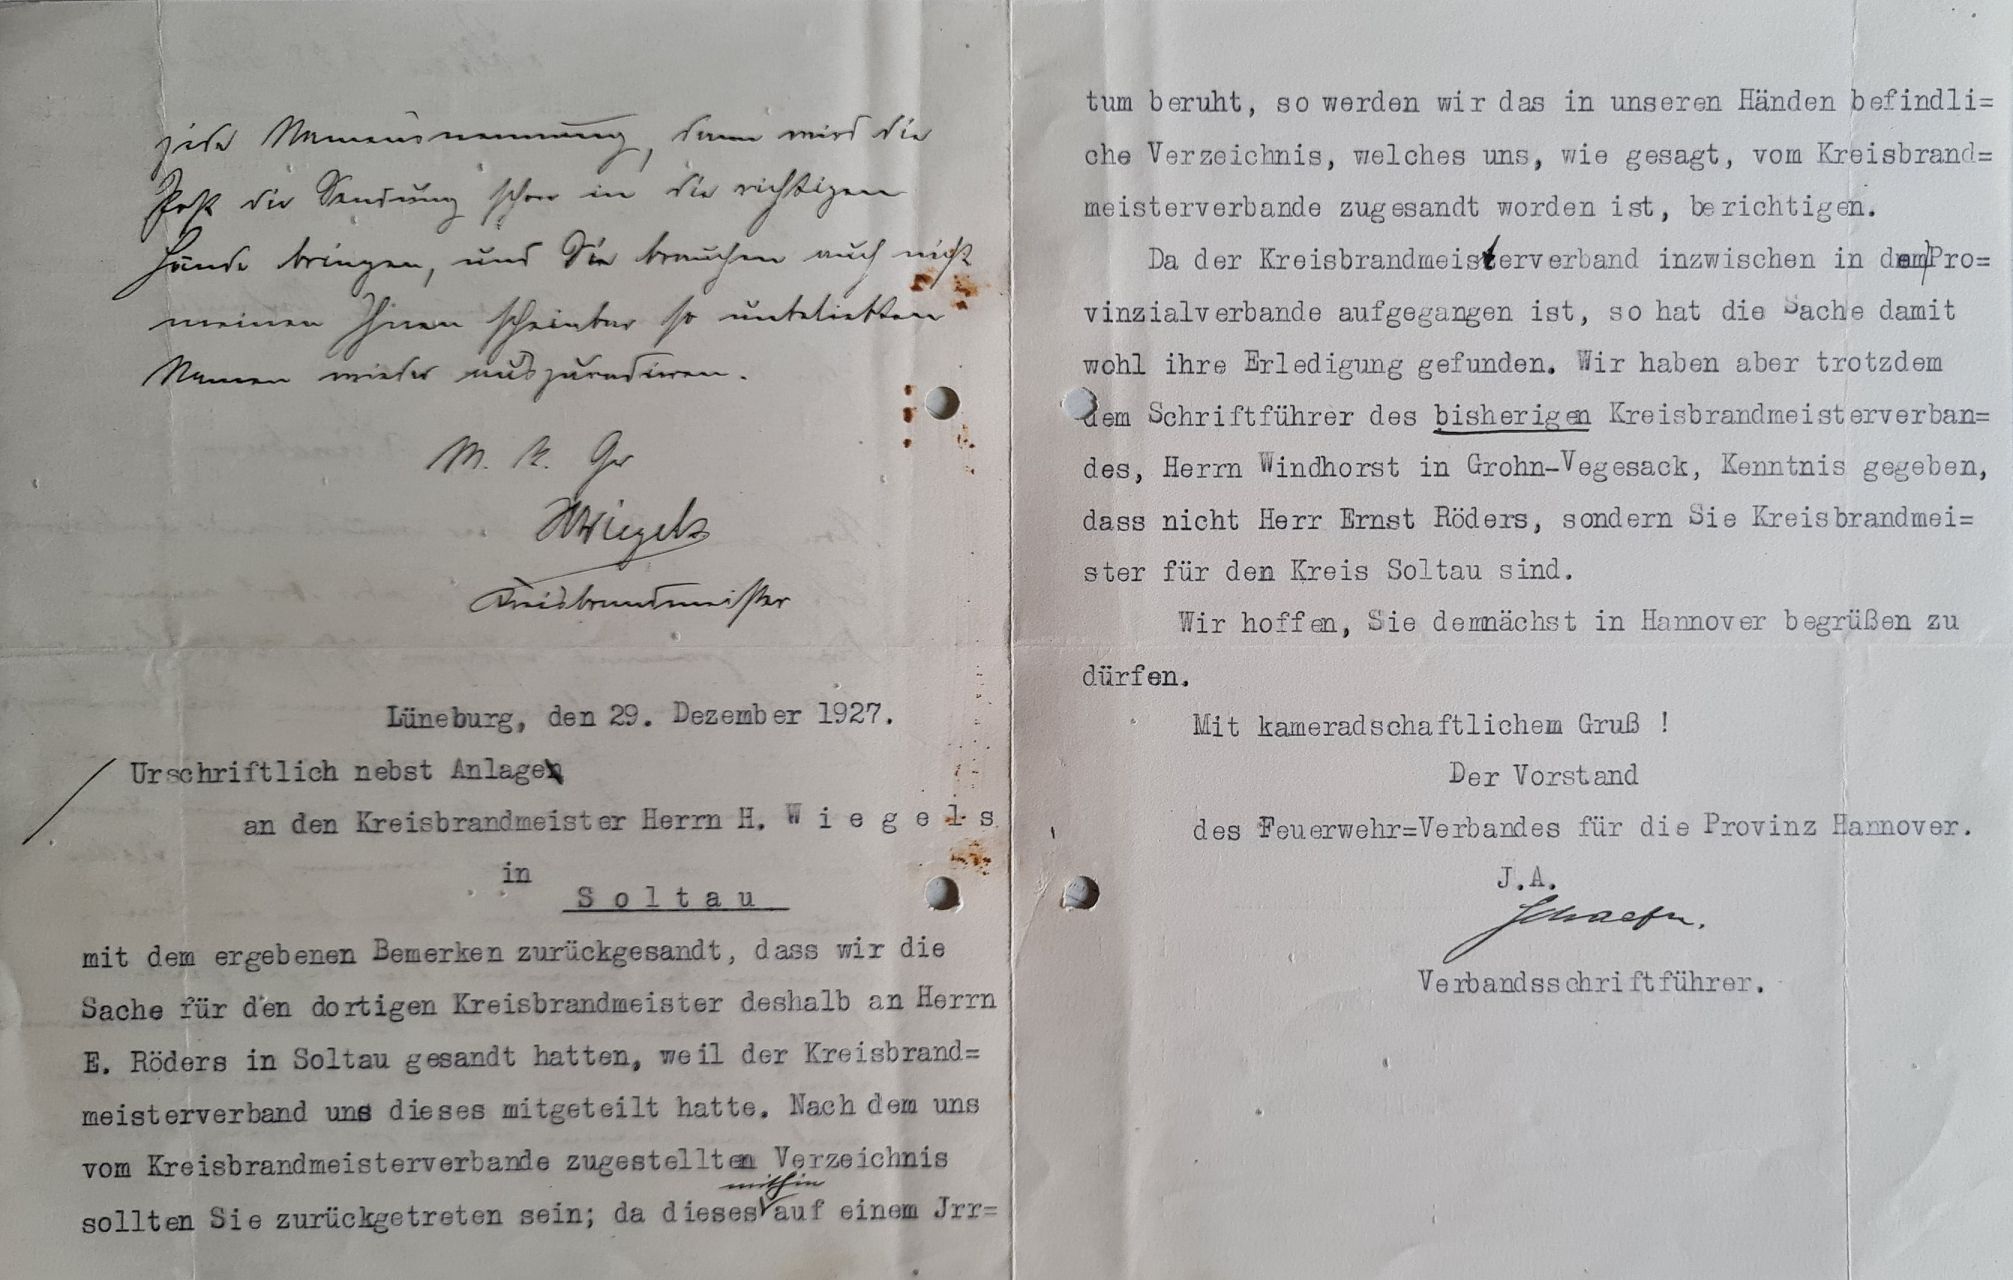 jede Namensnennung, dann wird die
Post die Sendung schon in die richtigen
Hände bringen, und Sie brauchen auch nicht
meinen Ihnen scheinbar so unbeliebten
Namen wieder auszuradieren.
M. k. Gr
HWiegels
Kreisbrandmeister
Lüneburg, den 29. Dezember 1927.
Urschriftlich nebst Anlage
an den Kreisbrandmeister Herrn H. W i e g e l s
in
S o l t a u
mit dem ergebenen Bemerken zurückgesandt, dass wir die
Sache für den dortigen Kreisbrandmeister deshalb an Herrn
E. Röders in Soltau gesandt hatten, weil der Kreisbrand=
meisterverband uns dieses mitgeteilt hatte. Nach dem uns
vom Kreisbrandmeisterverbande zugestellten Verzeichnis
sollten Sie zurückgetreten sein; da dieses mithin auf einem Jrr=
tum beruht, so werden wir das in unseren Händen befindli=
che Verzeichnis, welches uns, wie gesagt, vom Kreisbrand=
meisterverbande zugesandt worden ist, berichtigen.
Da der Kreisbrandmeisterverband inzwischen in dem Pro=
vinzialverbande aufgegangen ist, so hat die Sache damit
wohl ihre Erledigung gefunden. Wir haben aber trotzdem
dem Schriftführer des bisherigen Kreisbrandmeisterverban=
des, Herrn Windhorst in Grohn-Vegesack, Kenntnis gegeben,
dass nicht Herr Ernst Röders, sondern Sie Kreisbrandmei=
ster für den Kreis Soltau sind.
Wir hoffen, Sie demnächst in Hannover begrüßen zu
dürfen.
Mit kameradschaftlichem Gruß !
Der Vorstand
des Feuerwehr=Verbandes für die Provinz Hannover.
J.A.
Schaefer.
Verbandsschriftführer.